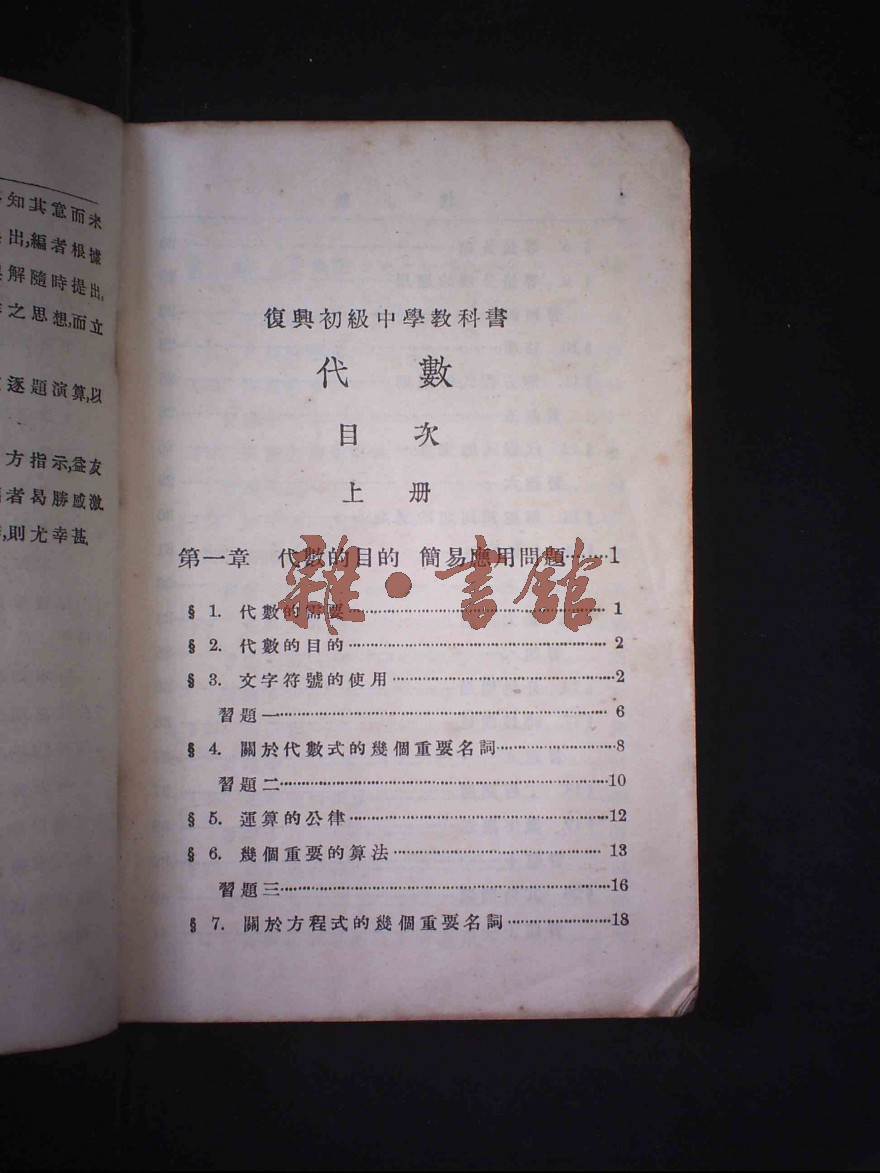 知其意而未
出,編者根據
解隨時提出,
之思想,而立
逐題演算,以
方指示,益友
者曷勝感激.
則尤幸甚.
復興初級中學教科書
代數
目次
上冊
第一章 代數的目的 簡易應用問題……1
§ 1. 代數的需要……1
§ 2. 代數的目的……2
§ 3. 文字符號的使用……2
習題一……6
§ 4. 關於代數式的幾個重要名詞……8
習題二……10
§ 5. 運算的公律……12
§ 6. 幾個重要的算法……13
習題三……16
§ 7. 關於方程式的幾個重要名詞……18
雜·書館